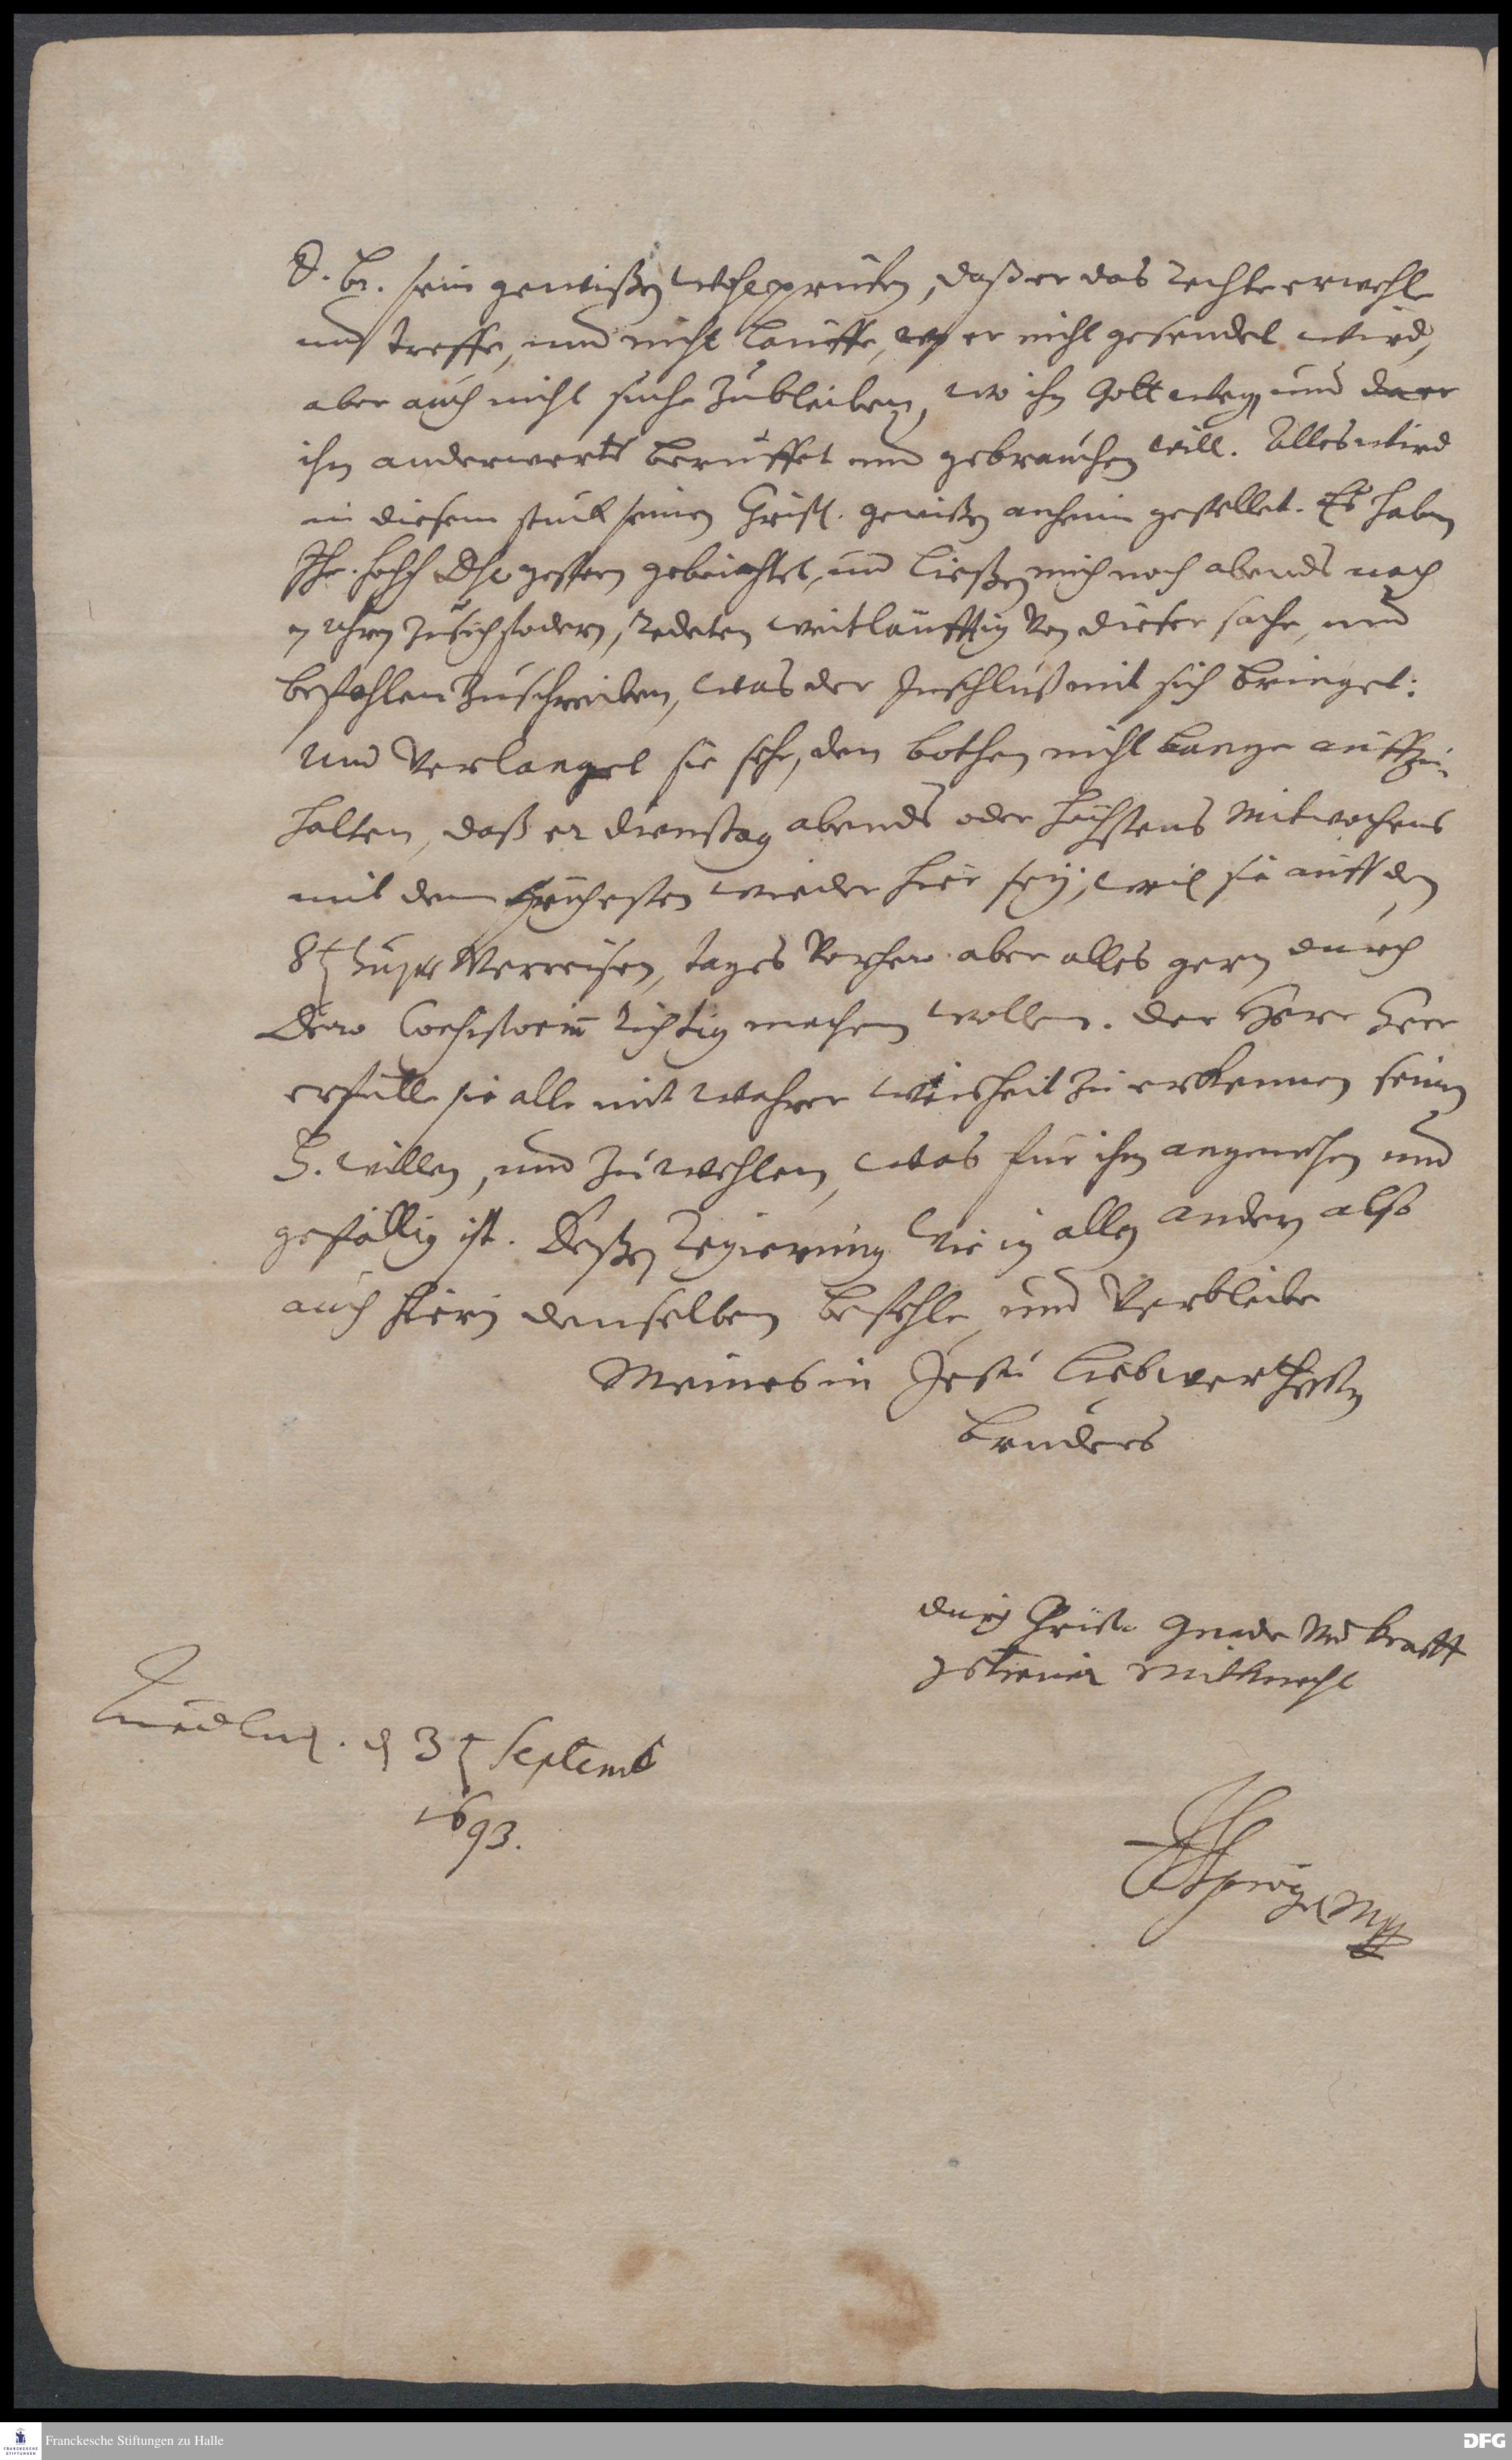 S. br. sein gewißen wohl prüfen, daß er das rechte erwehle
und treffe, und nicht lauffe, wo er nicht gesendet wird,
aber auch nicht suche zubleiben, wo ihn Gott weg, und da er
ihn anderwerts beruffet und gebrauchen will. Alles wird
in diesem stück seinen Christl. gewißen anheim gestellet. Es haben
Ihr. hochf. Dhl. gestern gebeichtet, und ließen mich noch abends nach
7 uhren zu sich fodern, redeten weitläufftig von dieser sache, und
befohlen zuschreiben, was der Inschluß mit sich bringet:
und verlanget sie sehr, den bothen nicht lange auffzu-
halten, daß er dienstag abends oder höchstens Mitwochens
mit dem frühesten wieder hier sey, weil sie auff den
8t verreisen, tages vorher aber alles gern durch
Dero Consistorium richtig machen wollen. Der Herr Herr
erfülle sie alle mit wahrer weisheit zu erkennen seinen
H. willen, und zu wehlen, was für ihm angenehm und
gefällig ist. Deßen regierung wie in allen andern also
auch hierin denselben befehle, und verbleibe
Meines in Jesu liebwerthesten
bruders
durch Christi Gnade und krafft
getreuer Mitknecht
Quedlinb. d 3t Septemb
1693.
Sprögel Mpp
Franckesche Stiftungen zu Halle
DFG